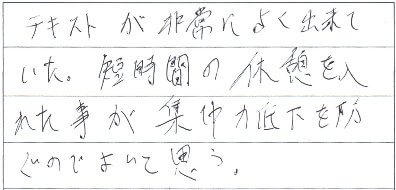 テキストが非常によく出来て
いた。短時間の休憩を入
れた事が集中力低下を防
ぐのでよいと思う。